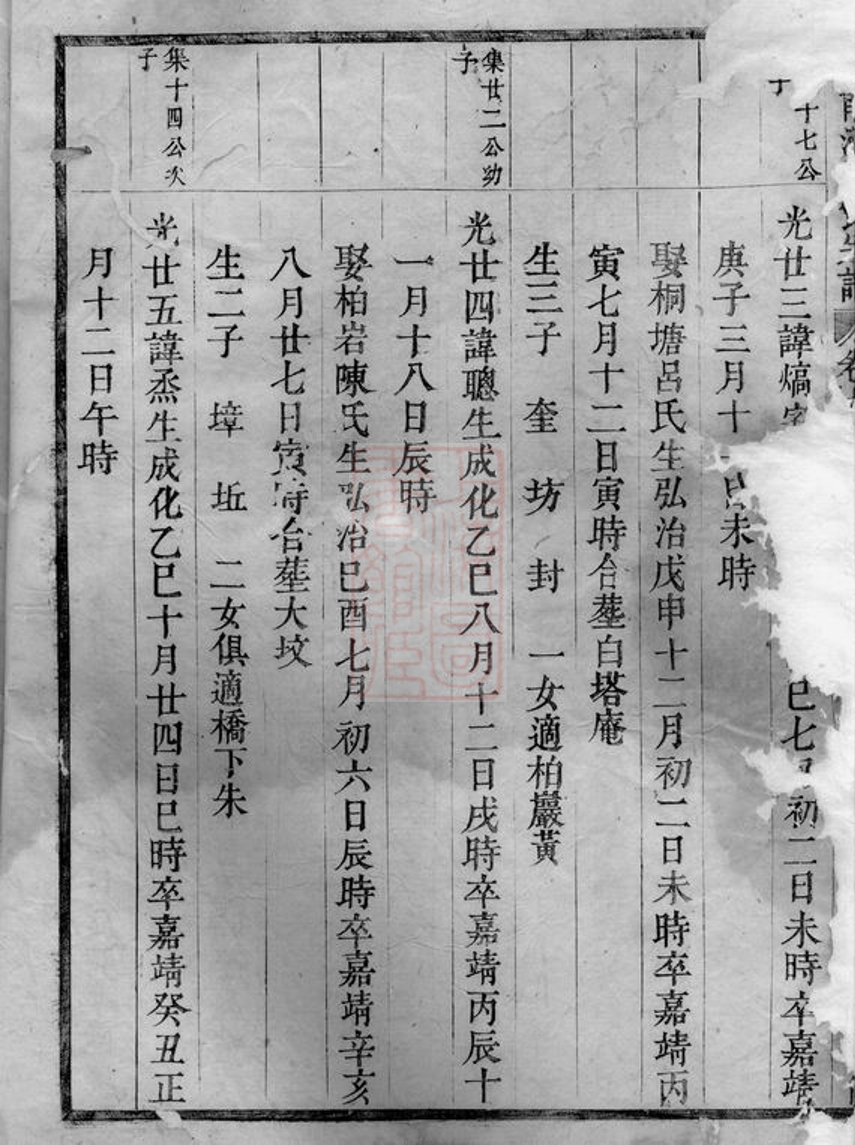 十七公
子
光廿三諱熇字
巳七月初二日未時卒嘉靖
庚子三月十
日未時
娶桐塘呂氏生弘治戊申十二月初二日未時卒嘉靖丙
寅七月十二日寅時合塟白塔庵
生三子 奎 坊 封 一女適柏巖黃
集廿二公幼
子
光廿四諱聰生成化乙巳八月十二日戌時卒嘉靖丙辰十
一月十八日辰時
娶柏岩陳氏生弘治巳酉七月初六日辰時卒嘉靖辛亥
八月廿七日寅時合塟大坟
生二子 墇 坵 二女俱適橋下朱
集十四公次
子
光廿五諱烝生成化乙巳十月廿四日巳時卒嘉靖癸丑正
月十二日午時